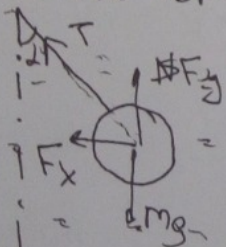 α
T
Fy
Fx
Mg